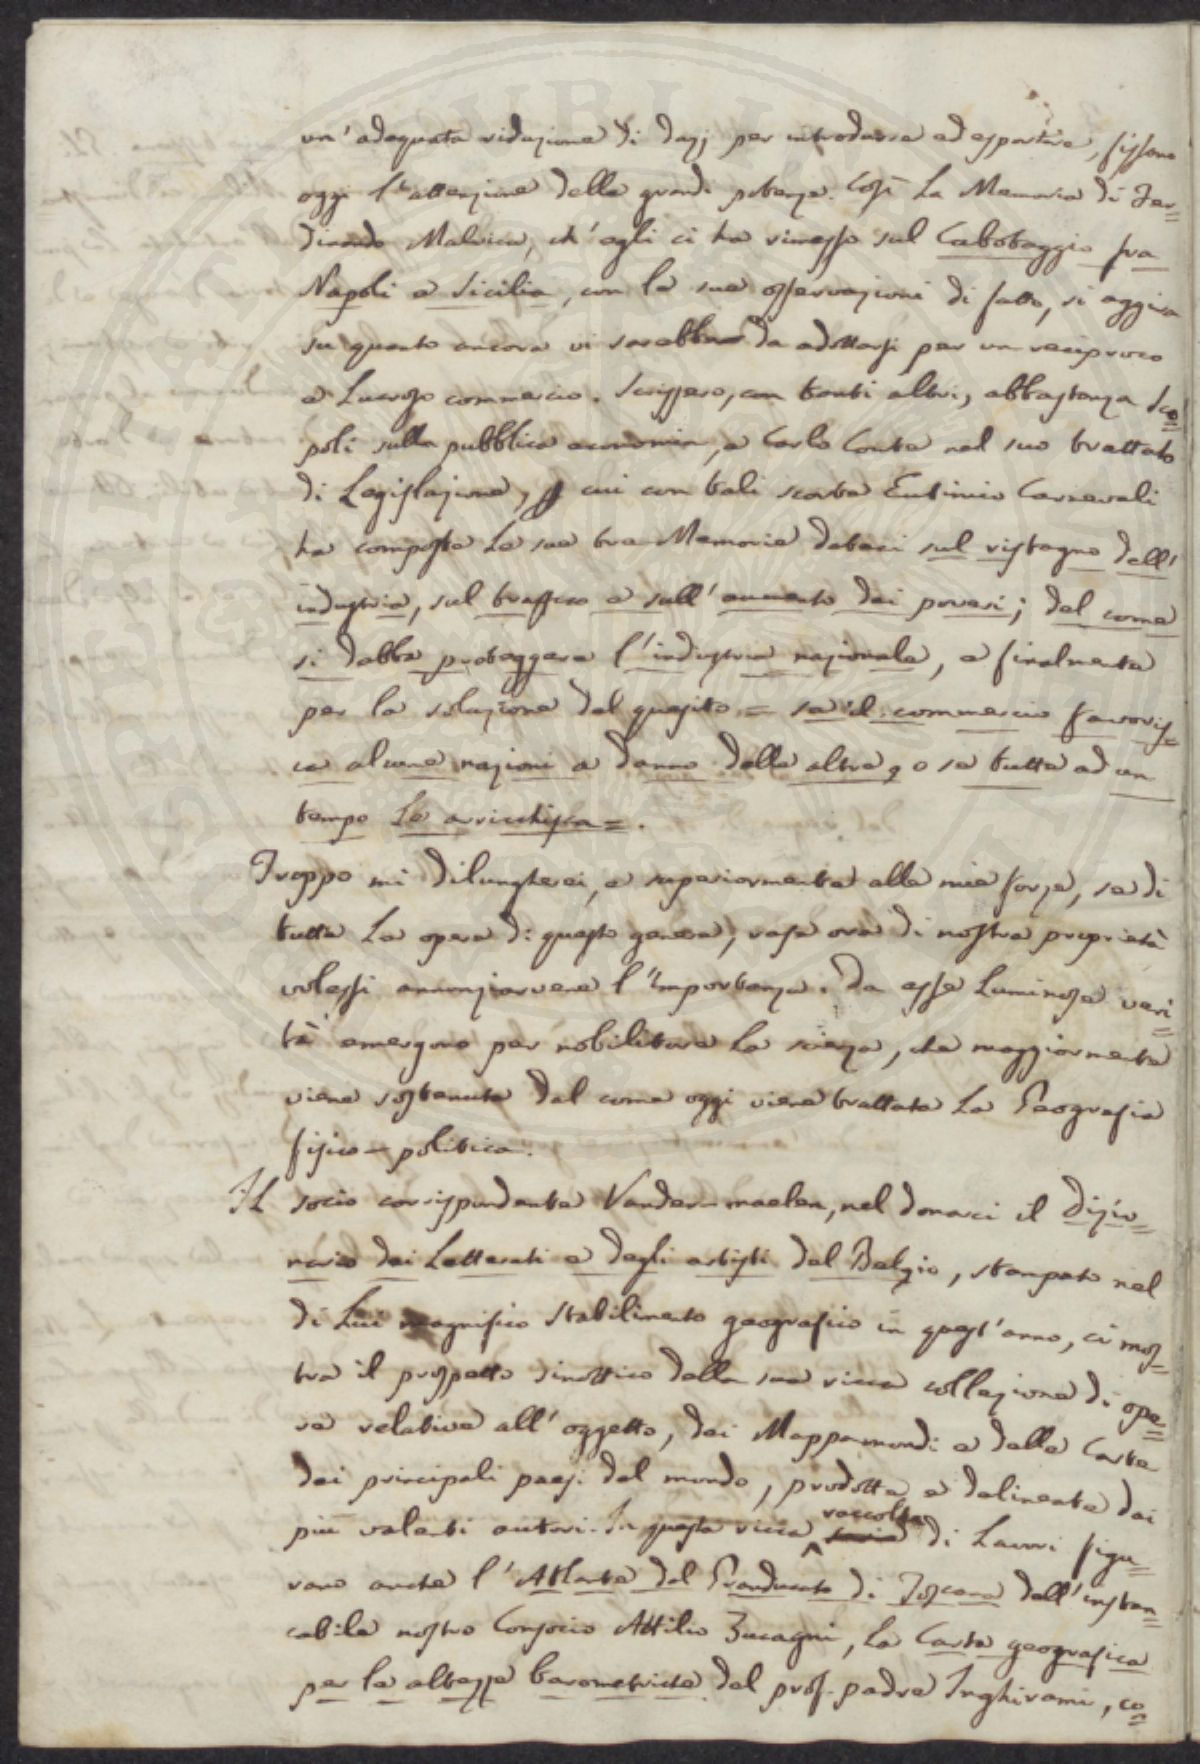 un' adeguata riduzione di dazj per introdurre ed esportare, fissono
oggi l'attenzione delle grandi potenze. Così la Memoria di Fer=
dinando Malvica, ch' egli ci ha rimesso sul Cabotaggio fra
Napoli e Sicilia, con le sue osservazioni di fatto, si aggira
su quanto ancora vi sarebbe da adottarsi per un reciproco
e Lucroso commercio. Scrissero, con tanti altri, abbastanza Sco=
poli sulla pubblica economia, e Carlo Conte nel suo trattato
di Legislazione, cui con tali scorte Eutimio Carnevali
ha composte Le sue tre Memorie dateci sul ristagno dell'
industria, sul traffico e sull' aumento dei poveri; del come
si debba proteggere l'industria nazionale, e finalmente
per la soluzione del quesito = se il commercio favoris=
ca alcune nazioni a danno delle altre, o se tutte ad un
tempo Le arricchisca =.
Troppo mi dilungherei, e superiormente alle mie forze, se di
tutte Le opere di questo genere, rese ora di nostra proprietà
volessi annunziarvene l'importanza. Da esse Luminose veri=
tà emergono per nobilitare La scienza, che maggiormente
viene sostenuta dal come oggi viene trattata La Geografia
fisico-politica.
Il socio corrispondente Vander-maelen, nel donarci il Dizio=
nario dei Letterati e degli artisti del Belgio, stampato nel
di Lui magnifico Stabilimento geografico in quest' anno, ci mos=
tra il prospetto sinottico della sua ricca collezione di ope=
re relative all' oggetto, dei Mappamondi e delle Carte
dei principali paesi del mondo, prodotte e delineate dai
più valenti autori. In questa ricca raccolta di Lavori figu=
rano anche l'Atlante del Granducato di Toscana dell' instan=
cabile nostro Consocio Attilio Zucagni, La Carta geografica
per le altezze barometriche del prof. padre Inghirami, co=